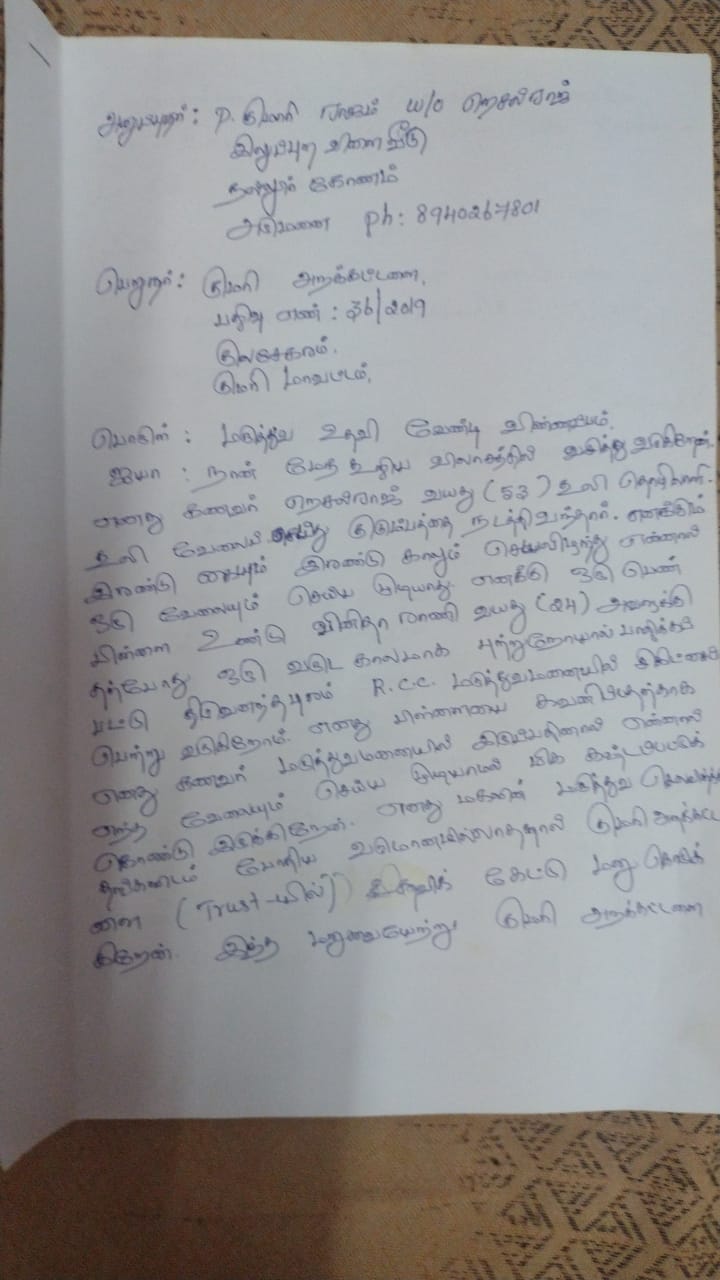 அனுப்புநர் : P. குமாரி ராஜம் w/o செல்வராஜ்
இலுப்புள விளை வீடு
கோணம்
அருமனை Ph : 8940267801
பெறுநர் : குமரி அறக்கட்டளை,
பதிவு எண் : 36/2019
குலசேகரம்.
குமரி மாவட்டம்.
பொருள் : மருத்துவ உதவி வேண்டி விண்ணப்பம்.
ஐயா : நான் மேற்கூறிய விலாசத்தில் வசித்து வருகிறேன்.
எனது கணவர் வயது (53) தொழிலாளி.
வேலை செய்து குடும்பத்தை நடத்தி வந்தார். எனக்கும்
இரண்டு கையும் இரண்டு காலும் செயலிழந்து என்னால்
ஒரு வேலையும் செய்ய முடியாது. எனக்கு ஒரு பெண்
பிள்ளை உண்டு வினிதா ராணி வயது (24) அவளுக்கு
தற்போது ஒரு வருட காலமாக புற்றுநோயால் பாதிக்கப்
பட்டு திருவனந்தபுரம் R.C.C. மருத்துவமனையில் சிகிட்சை
பெற்று வருகிறோம். எனது பிள்ளையை கவனிப்பதற்காக
எனது கணவர் மருத்துவமனையில் இருப்பதினால் என்னால்
எந்த வேலையும் செய்ய முடியாமல் மிக கஷ்டப்பட்டுக்
கொண்டு இருக்கிறேன். எனது மகளின் மருத்துவ செலவுக்கு
போதிய வருமானமில்லாததால் குமரி அறக்கட்ட
ளை (Trust-யில்) உதவிக் கேட்டு மனு கொடுக்
கிறேன். இந்த மனுவையேற்று குமரி அறக்கட்டளை